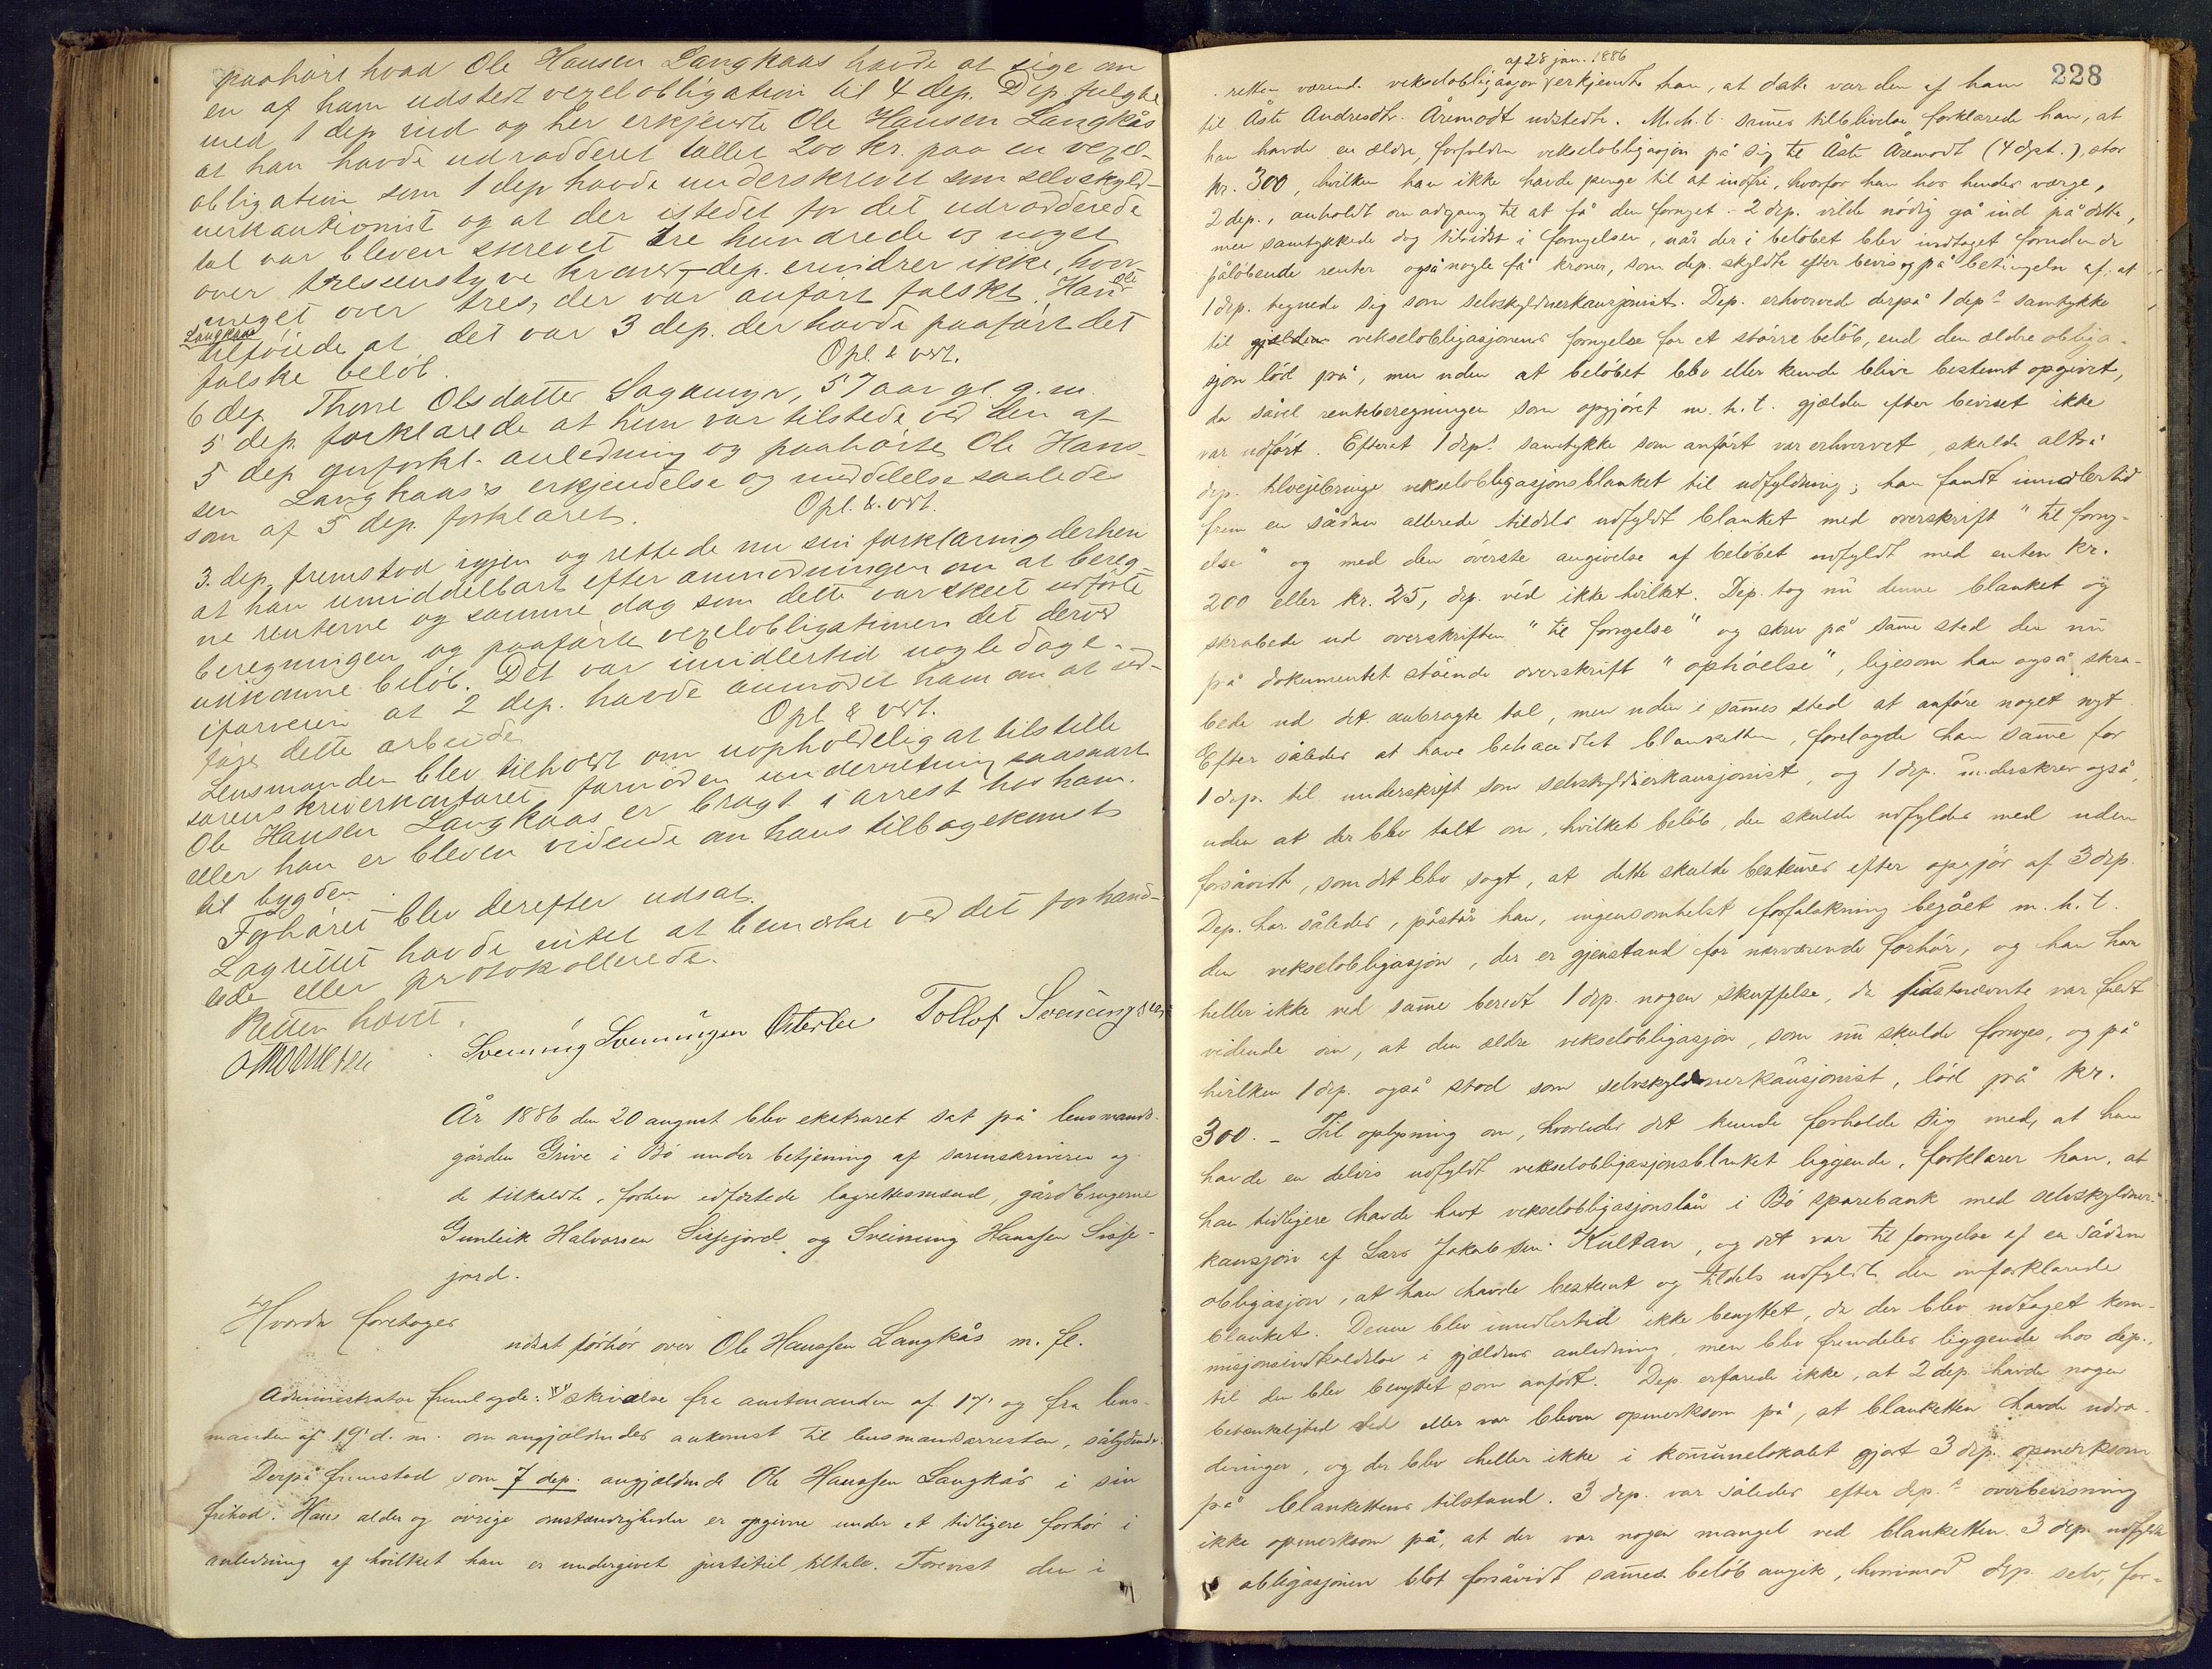 paahört hvad Ole Hansen Langkaas havde at sige om
en af ham udstedt vexelobligation til 4 dep. Dep. fulgte
med 1 dep ind og her erkjendte Ole Hansen Langkås
at han havde udradderet tallet 200 kr. paa en vexel-
obligation som 1 dep havde underskrevet som selvskyld-
nerkautionist og at der istedet for det udradderede
tal var bleven skrevet tre hundrede og noget
over tressenstyve kroner, – dep. erindrer ikke, hvor
meget over tres, der var anfört falskt. Han Ole
Langkaas tilföiede at det var 3 dep. der havde paafört det
falske belöb. Opl. & vedt.
6 dep. Thone Olsdatter Sagamyr, 57 aar gl. g. m.
5 dep. forklarede at hun var tilstede ved den af
5 dep omforkl. anledning og paahörte Ole Han-
sen Langkaas's erkjendelse og meddelelse saaledes
som af 5 dep. forklaret. Opl. & vedt.
3. dep. fremstod igjen og rettede nu sin forklaring derhen
at han umiddelbart efter anmodningen om at bereg-
ne renterne og samme dag som dette var skeet udförte
beregningen og paaförte vexelobligationen det derved
udkomne belöb. Det var imidlertid nogle dage
iforveien at 2 dep. havde anmodet ham om at ud-
före dette arbeide. Opl. & vedt.
Lensmanden blev tilholdt om uopholdelig at tilstille
sorenskriverkontoret fornöden underretning saasnart
Ole Hansen Langkaas er bragt i arrest hos ham.
eller han er bleven vidende om hans tilbagekomst
til bygden.
Forhöret blev derefter udsat.
Lagrettet havde intet at bemærke ved det forhand-
lede eller protokollerede.
Retten hævet.
Svening Sveningsen Österlie Tollof Sveinungsen
År 1886 den 20 august blev ekstraret sat på lensmands-
gården Grive i Bö under betjening af sorenskriveren og
de tilkaldte, forhen edfæstede lagrettesmænd, gårdbrugerne
Gunleik Halvorsen Sissejord og Sveinung Hanssen Sisse-
jord.
Hvorda foretoges
udsat förhör over Ole Hanssen Langkås m. fl.
Administrator fremlagde: skrivelse fra amtmanden af 17' og fra lens-
manden af 19' d. m. om angjældendes ankomst til lensmandsarresten, sålydende
Derpå fremstod som 7 dep. angjældende Ole Hanssen Langkås i sin
frihed. Hans alder og övrige omstændigheder er opgivne under et tidligere forhör i
anledning af hvilket han er undergivet justitiel tiltale. Forevist den i
228
af 28 jan. 1886
retten værende vekselobligasjon erkjendte han, at dette var den af ham
til Åste Andresdtr. Åremodt udstedte. M. h. t. sammes tilblivelse forklarede han, at
han havde en ældre, forfalden vekselobligasjon på sig til Åste Åremodt (4 dep.), stor
kr. 300, hvilken han ikke havde penge til at indfri, hvorfor han hos hendes værge,
2 dep., anholdt om adgang til at få den fornyet. 2 dep. vilde nödig gå ind på dette,
men samtykkede dog tilsidst i fornyelsen, når der i belöbet blev indtaget foruden de
påløbende renter også nogle få kroner, som dep. skyldte efter bevis og på betingelse af, at
1 dep. tegnede sig som selvskyldnerkausjonist. Dep. erhvervede derpå 1 dep.s samtykke
til gjelden vekselobligasjonens fornyelse for et större belöb, end den ældre obliga-
sjon löd på, men uden at belöbet blev eller kunde blive bestemt opgivet,
da såvel renteberegningen som opgjöret m. h. t. gjælden efter beviset ikke
var udfört. Efterat 1 dep.s samtykke som anfört var erhvervet, skulde altså
dep. tilvejebringe vekselobligasjonsblanket til udfyldning; han fandt imidlertid
frem en sådan allerede tildels udfyldt blanket med overskrift "til forny-
else" og med den överste angivelse af belöbet udfyldt med enten kr.
200 eller kr. 25, dep. véd ikke hvilket. Dep. tog nu denne blanket og
skrabede ud overskriften "til fornyelse" og skrev på samme sted den nu
på dokumentet stående overskrift "ophöielse", ligesom han også skra-
bede ud det anbragte tal, men uden i sammes sted at anføre noget nyt.
Efter således at have behandlet blanketten, forelagde han samme for
1 dep. til underskrift som selvskyldnerkausjonist, og 1 dep. underskrev også,
uden at der blev talt om, hvilket belöb, den skulde udfyldes med uden
forsåvidt, som det blev sagt, at dette skulde bestemmes efter opgjör af 3 dep.
Dep. har således, påstår han, ingensomhelst forfalskning begået m. h. t.
den vekselobligasjon, der er gjenstand for nærværende forhör, og han har
heller ikke ved samme beredt 1 dep. nogen skuffelse, da sidstnævnte var fuldt
vidende om, at den ældre vekselobligasjon, som nu skulde fornyes, og på
hvilken 1 dep. også stod som selvskyldnerkausjonist, löd på kr.
300. – Til oplysning om, hvorledes det kunde forholde sig med, at han
havde en delvis udfyldt vekselobligasjonsblanket liggende, forklarer han, at
han tidligere havde havt vekselobligasjonslån i Bö sparebank med selvskyldner-
kausjon af Lars Jakobsen Kultan, og det var til fornyelse af en sådan
obligasjon, at han havde bestemt og tildels udfyldt den omforklarede
blanket. Denne blev imidlertid ikke benyttet, da der blev udtaget kom-
misjonsindkaldelse i gjældens anledning, men blev fremdeles liggende hos dep.,
til den blev benyttet som anfört. Dep. erfarede ikke, at 2 dep. havde nogen
betænkelighed ved eller var bleven opmerksom på, at blanketten havde udra-
deringer, og der blev heller ikke i kommunelokalet gjort 3 dep. opmerksom
på blankettens tilstand. 3 dep. var således efter dep.s overbevisning
ikke opmerksom på, at der var nogen mangel ved blanketten. 3 dep. udfyldte
obligasjonen blot forsåvidt sammes belöb angik, hvorimod dep. selv, for-